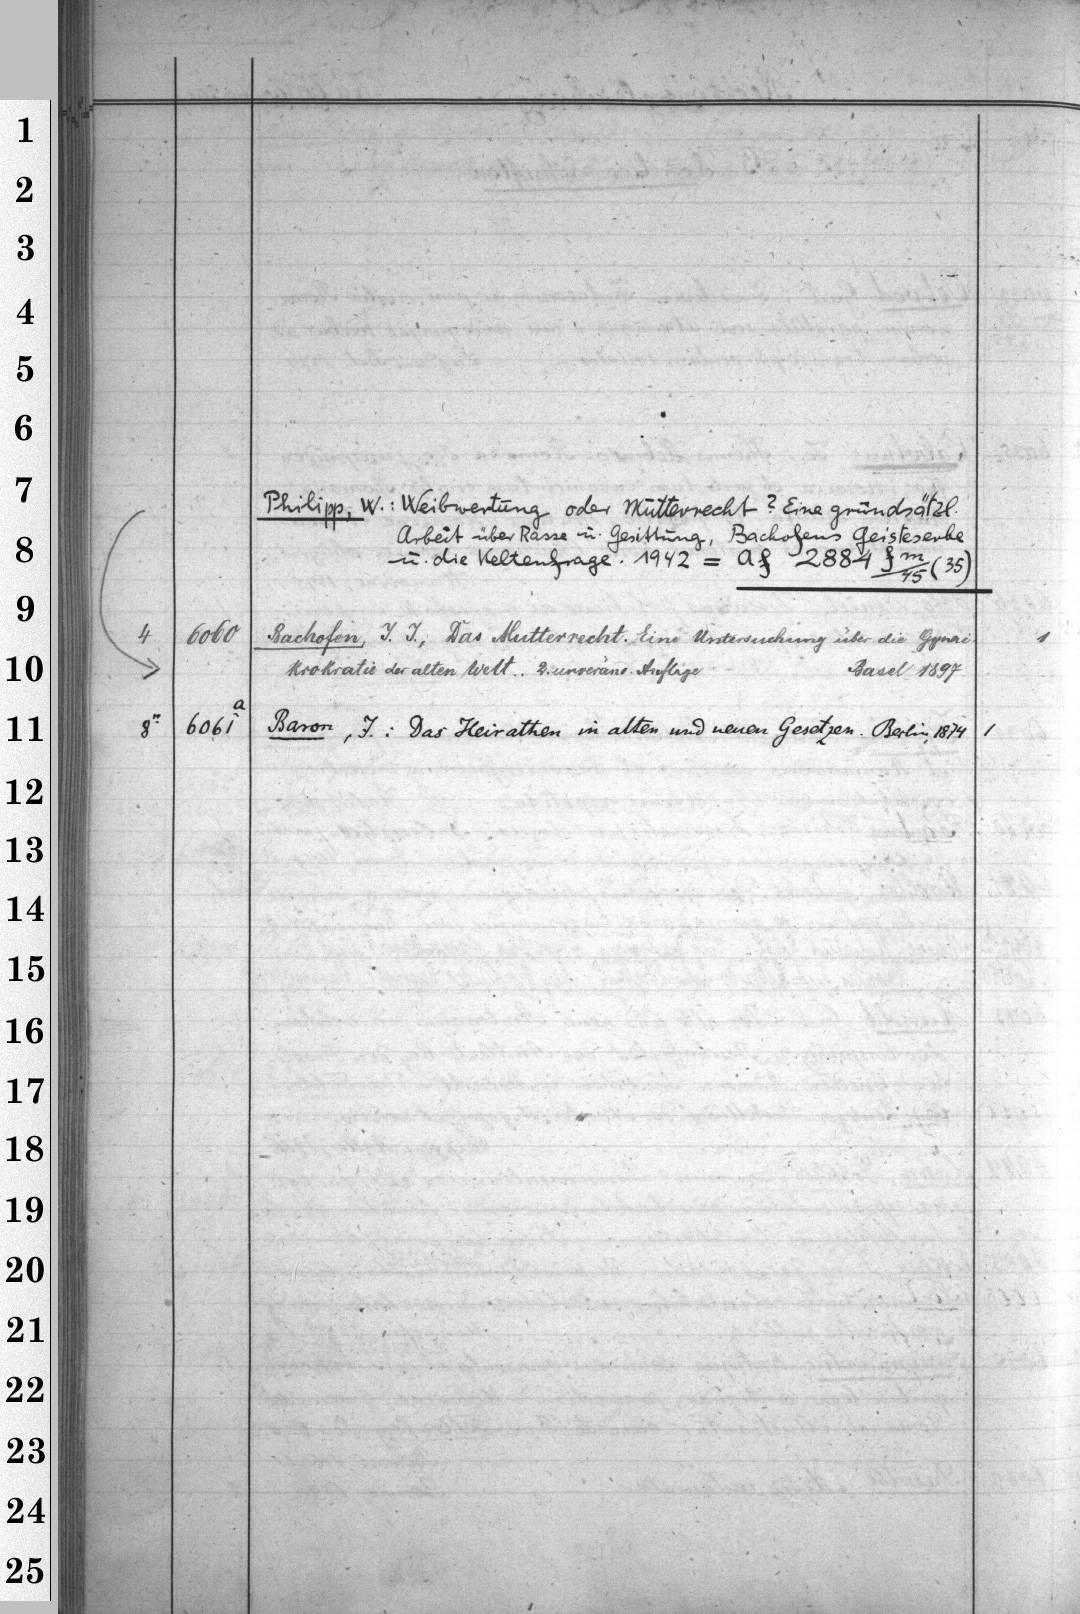 1
2
3
4
5
6
7
Philipp, W.: Weibwertung oder Mutterrecht? Eine grundsätzl.
8
Arbeit über Rasse u. Gesittung, Bachofens Geisteserbe
u. die Keltenfrage. 1942 = af 2884 f m/45 (35)
9
4 6060 Bachofen, J. J., Das Mutterrecht. Eine Untersuchung über die Gynai- 1
10
kokratie der alten Welt.. 2. unveränd. Auflage Basel 1897
11
8° 6061a Baron, J.: Das Heirathen in alten und neuen Gesetzen. Berlin, 1874 1
12
13
14
15
16
17
18
19
20
21
22
23
24
25